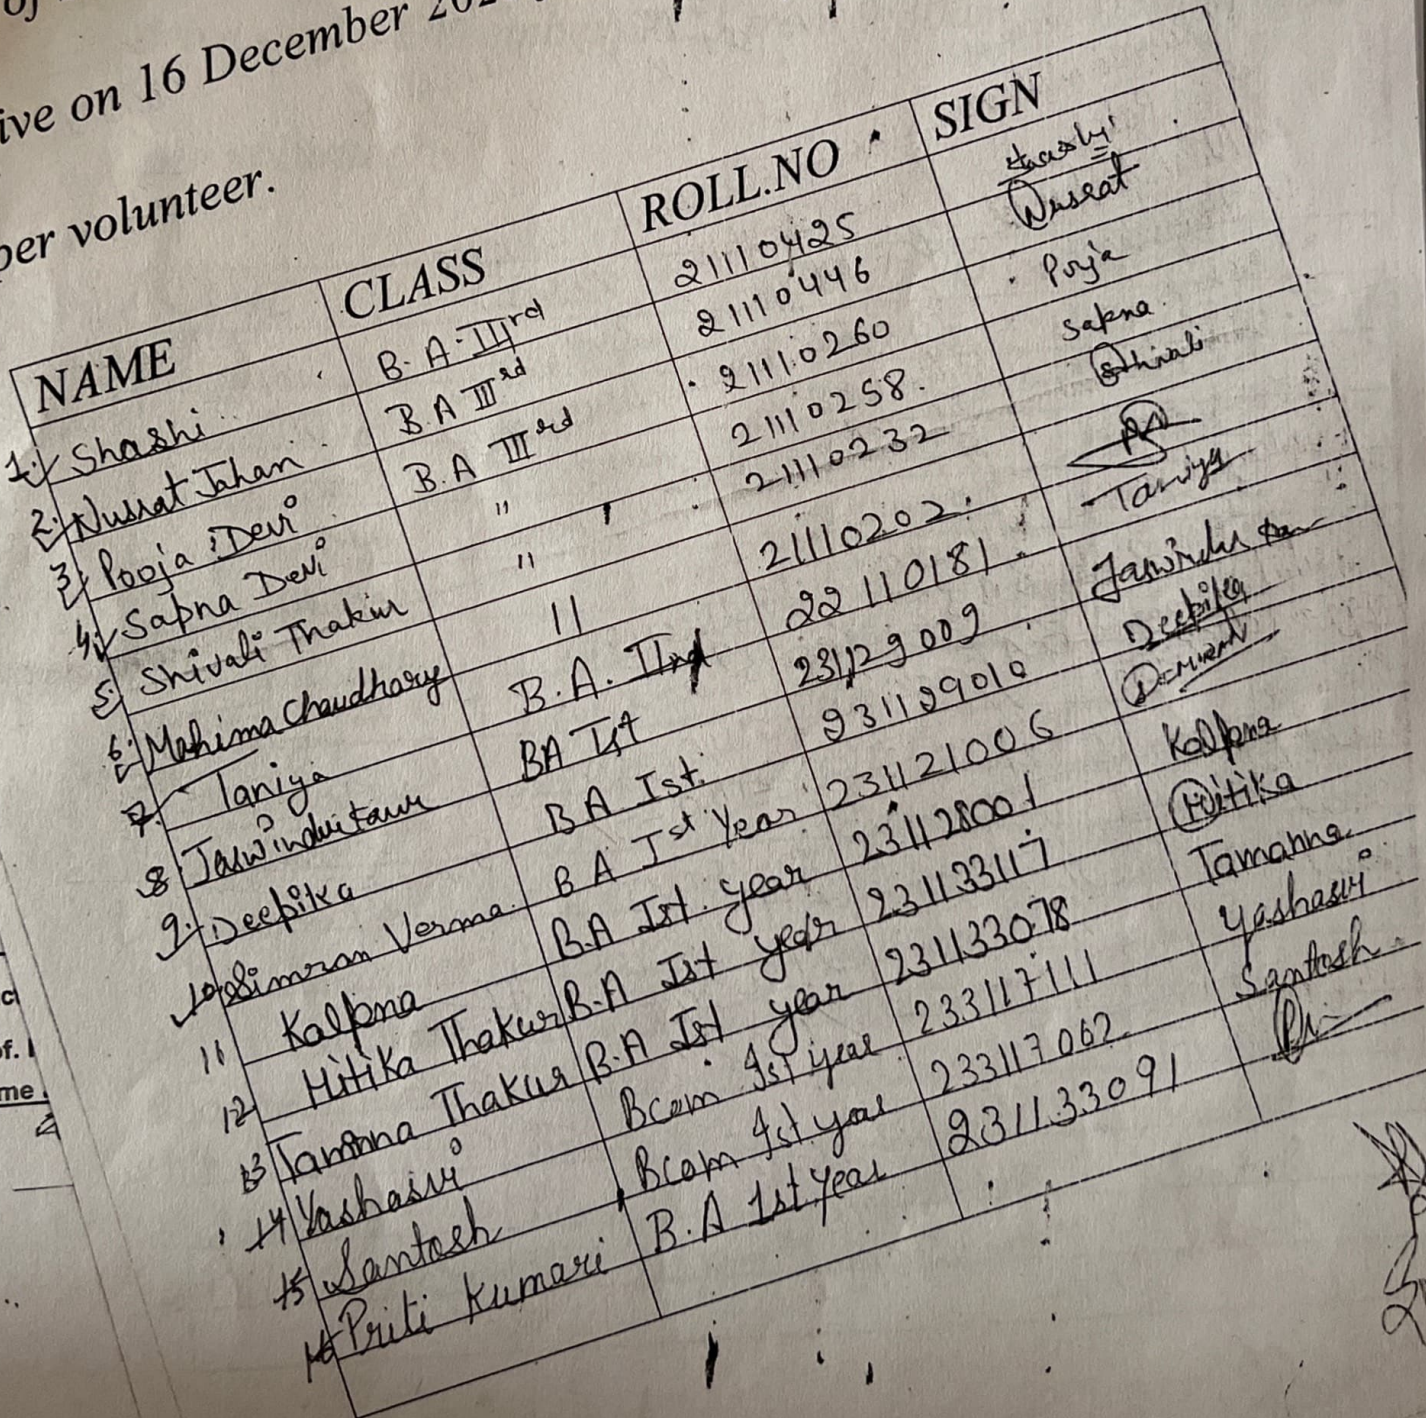 ive on 16 December
per volunteer.
NAME CLASS ROLL.NO SIGN
1. Shashi B.A-IIIrd 21110425 Shashi
2. Nusrat Jahan B.A IIIrd 21110446 Nusrat
3. Pooja Devi B.A IIIrd 21110260 Pooja
4. Sapna Devi " 21110258. Sapna
5. Shivali Thakur " 21110232 Shivali
6. Mahima Chaudhary 11 21110202.
7. Taniya B.A. IInd 22110181 Taniya
8 BA Ist 231129009 Jaswinder
9. Deepika BA Ist. 231129010 Deepika
10 Simran Verma. BA Ist Year 231121006
11 Kalpna B.A Ist. year 231128001 Kalpna
12 Hitika Thakur B.A Ist year 231133117 Hitika
13 Thakur B.A Ist year 231133078 Tamanna
14 Yashasvi Bcom Ist year 233117111 Yashasvi
15 Santosh Bcom Ist year 233117062 Santosh
16 Priti Kumari B.A 1st year 231133091